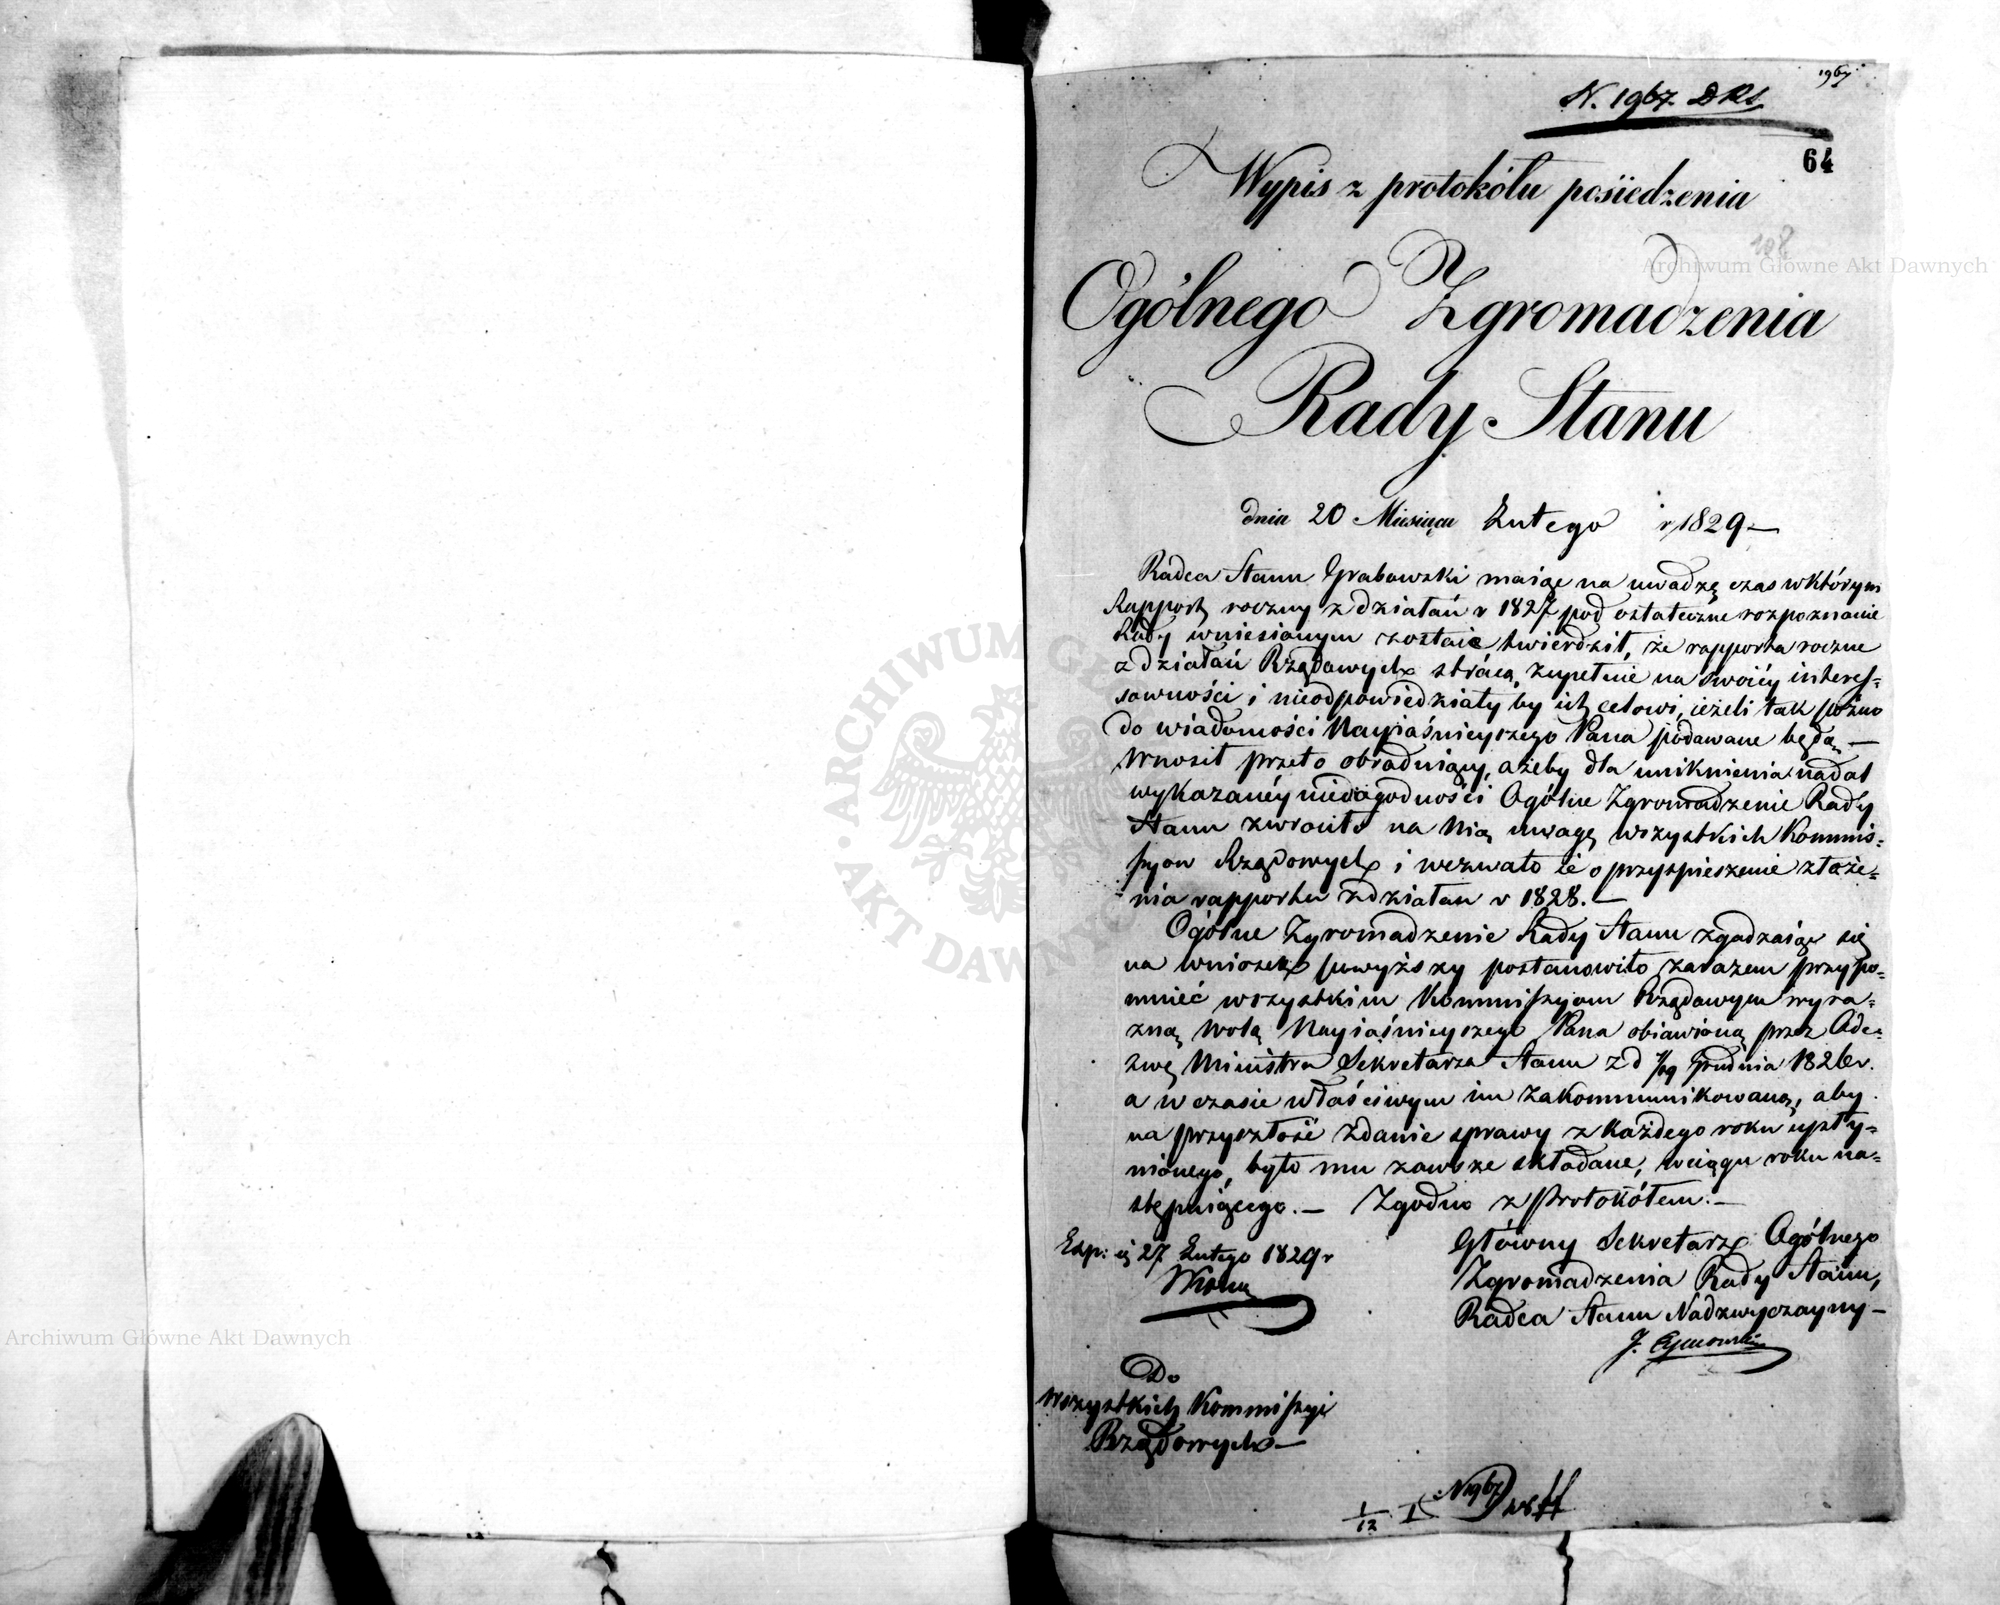 1967
N. 1967 DRS
64
108
Wypis z protokółu posiedzenia
Ogólnego Zgromadzenia
Rady Stanu
dnia 20 Miesiąca Lutego r 1829 —
Radca Stanu Grabowski maiąc na uwadze czas w którym
Rapport roczny z działań r 1827 pod ostateczne rozpoznanie
Rady wniesionym zostaie twierdził, że rapporta roczne
z działań Rządowych stracą zupełnie na swoiéy interes-
sowności i nieodpowiedziały by ich celowi, ieżeli tak poźno
do wiadomości Nayiaśnieyszego Pana podawane będą —
Wnosił przeto obraduiący, ażeby dla uniknienia nadal
wykazanéy niedogodności Ogólne Zgromadzenie Rady
Stanu zwróciło na Nią uwagę wszystkich Kommis-
syow Rządowych i wezwało ie o przyspieszenie złoże-
nia rapportu z działań r 1828. —
Ogólne Zgromadzenie Rady Stanu zgadzaiąc się
na wniosek powyższy postanowiło zarazem przypo-
mnieć wszystkim Kommissyom Rządowym wyra-
zną wolą Nayiaśnieyszego Pana obiawioną przez Ode-
zwę Ministra Sekretarza Stanu z d Grudnia 1826 r.
a w czasie właściwym im zakommunikowaną, aby
na przyszłość zdanie sprawy z każdego roku upły-
nionego, było mu zawsze składane, w ciągu roku na-
stępuiącego. — Zgodno z Protokółem. —
Exp: 27 Lutego 1829 r
Główny Sekretarz Ogólnego
Zgromadzenia Rady Stanu,
Radca Stanu Nadzwyczayny —
Do
Wszystkich Kommissyi
Rządowych —
1/12 I N 1967
Archiwum Główne Akt Dawnych
Archiwum Główne Akt Dawnych
ARCHIWUM GŁ
AKT DAWNYCH